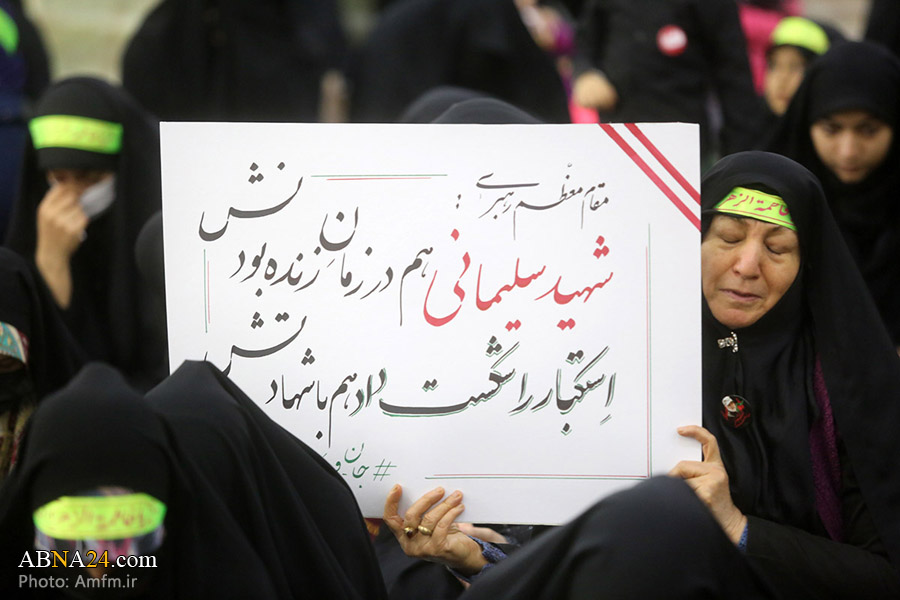 مقام معظم رهبری :
شهید سلیمانی هم در زمانِ زنده بودنش
اِستکبار را شکست داد هم با شهادتش
#جان
فاطمة الزهر
ABNA24.com
Photo: Amfm.ir